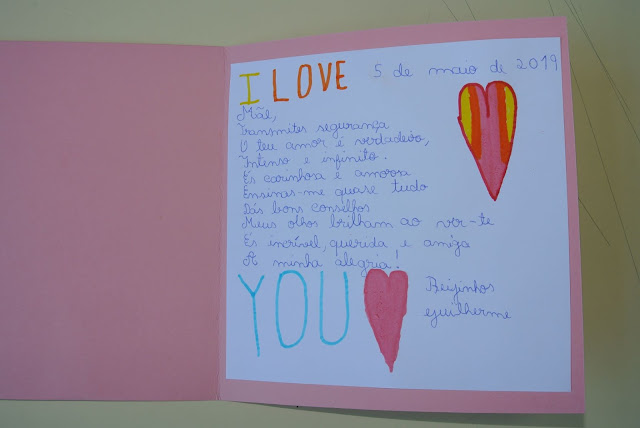 I LOVE
5 de maio de 2019
Mãe,
Transmites segurança
O teu amor é verdadeiro,
Intenso e infinito.
És carinhosa e amorosa
Ensinas-me quase tudo
Dás bons conselhos
Meus olhos brilham ao ver-te
És incrível, querida e amiga
A minha alegria!
YOU
Beijinhos
Guilherme